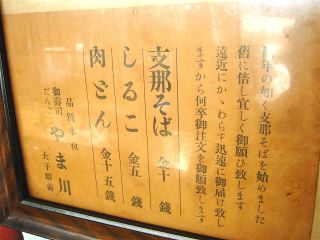 例年の如く支那そばを始めました
舊に倍し宜しく御願ひ致します
遠近にかゝわらす迅速に御届け致し
ますから何卒御注文を御願致します
支那そば 金十銭
しるこ 金五銭
肉どん 金十五銭
品質本位
御壽司
だんご
やま川
大手晴弟